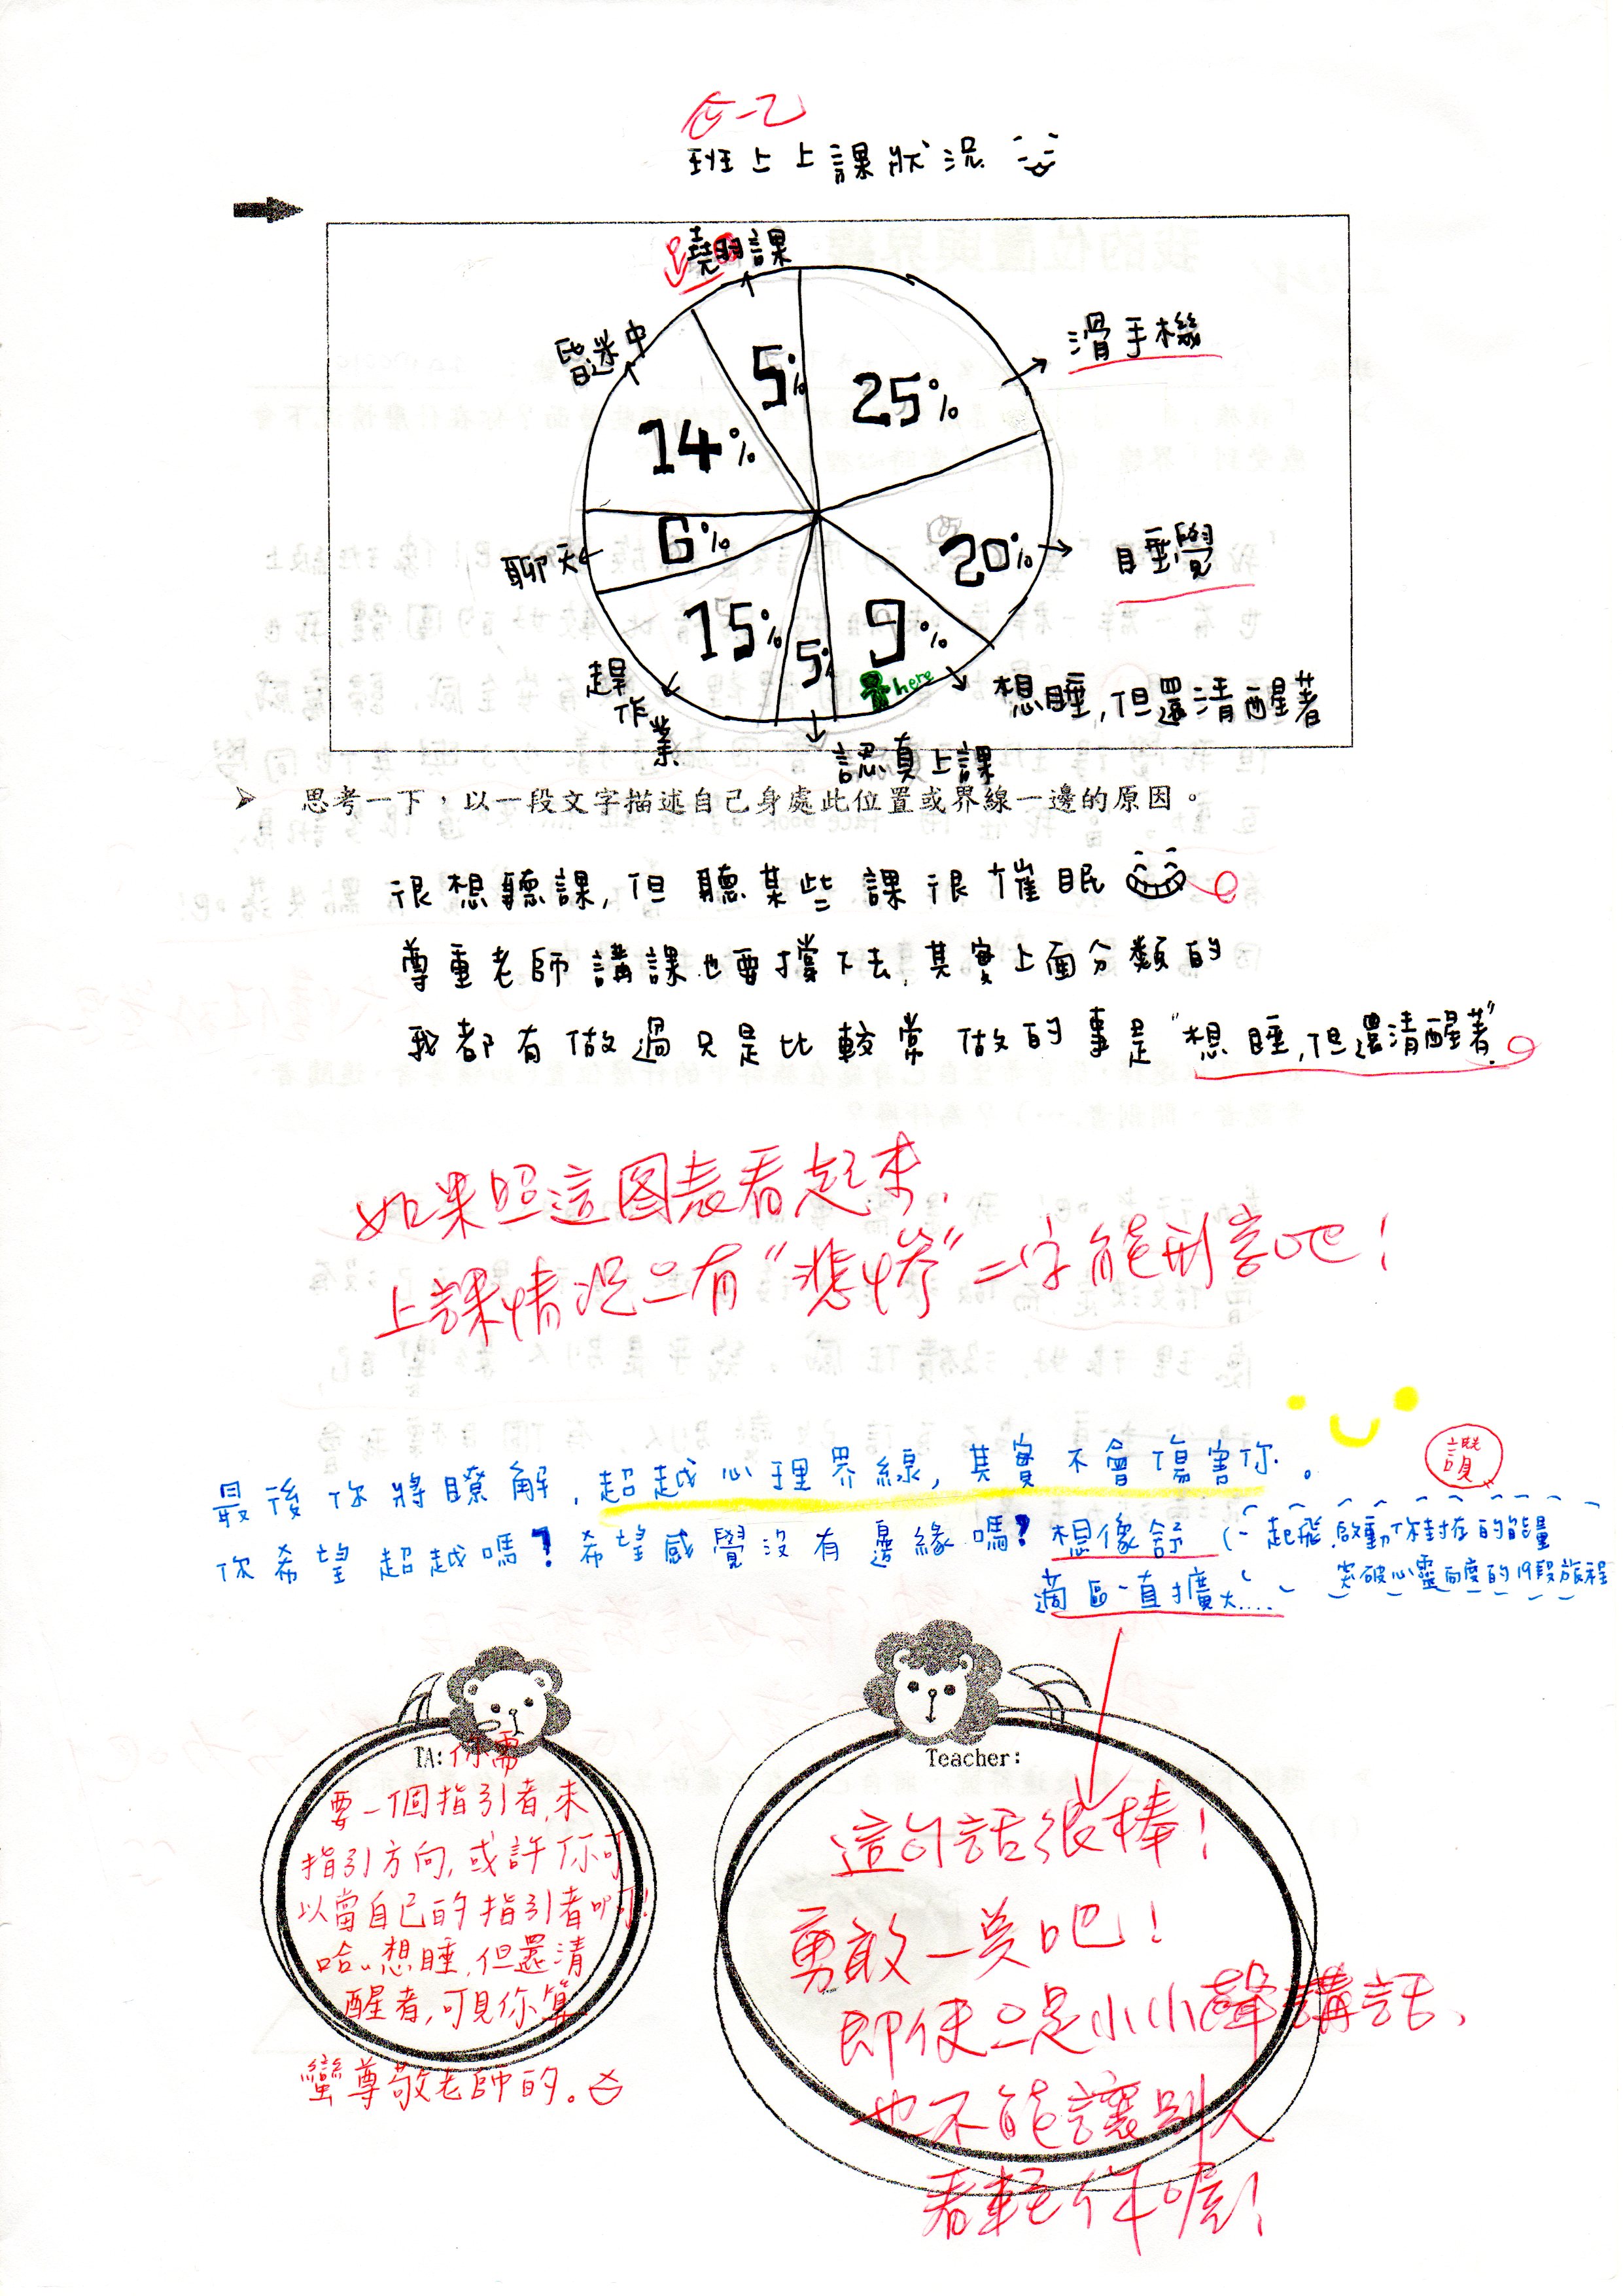 班上上課狀況
蹺課
滑手機
昏迷中
5%
25%
14%
6%
聊天
20%
睡覺
15%
5%
9%
here
趕
作
業
想睡,但還清醒著
認真上課
思考一下，以一段文字描述自己身處此位置或界線一邊的原因。
很想聽課,但聽某些課很催眠
尊重老師講課也要撐下去,其實上面分類的
我都有做過只是比較常做的事是"想睡,但還清醒著".
如果照這图表看起來,
上課情況只有"悲慘"二字能形容吧!
最後你將瞭解,超越心理界線,其實不會傷害你。
讚
你希望超越嗎?希望感覺沒有邊緣嗎?想像舒
適區一直擴大....
起飛,啟動你封存的能量
突破心靈向度的19段旅程
TA:你需
要一個指引者,來
指引方向,或許你可
以當自己的指引者呵!
哈。想睡,但還清
醒者,可見你算
蠻尊敬老師的。
Teacher:
這句話很棒!
勇敢一点吧!
即使只是小小聲講話、
也不能讓別人
看輕你喔!